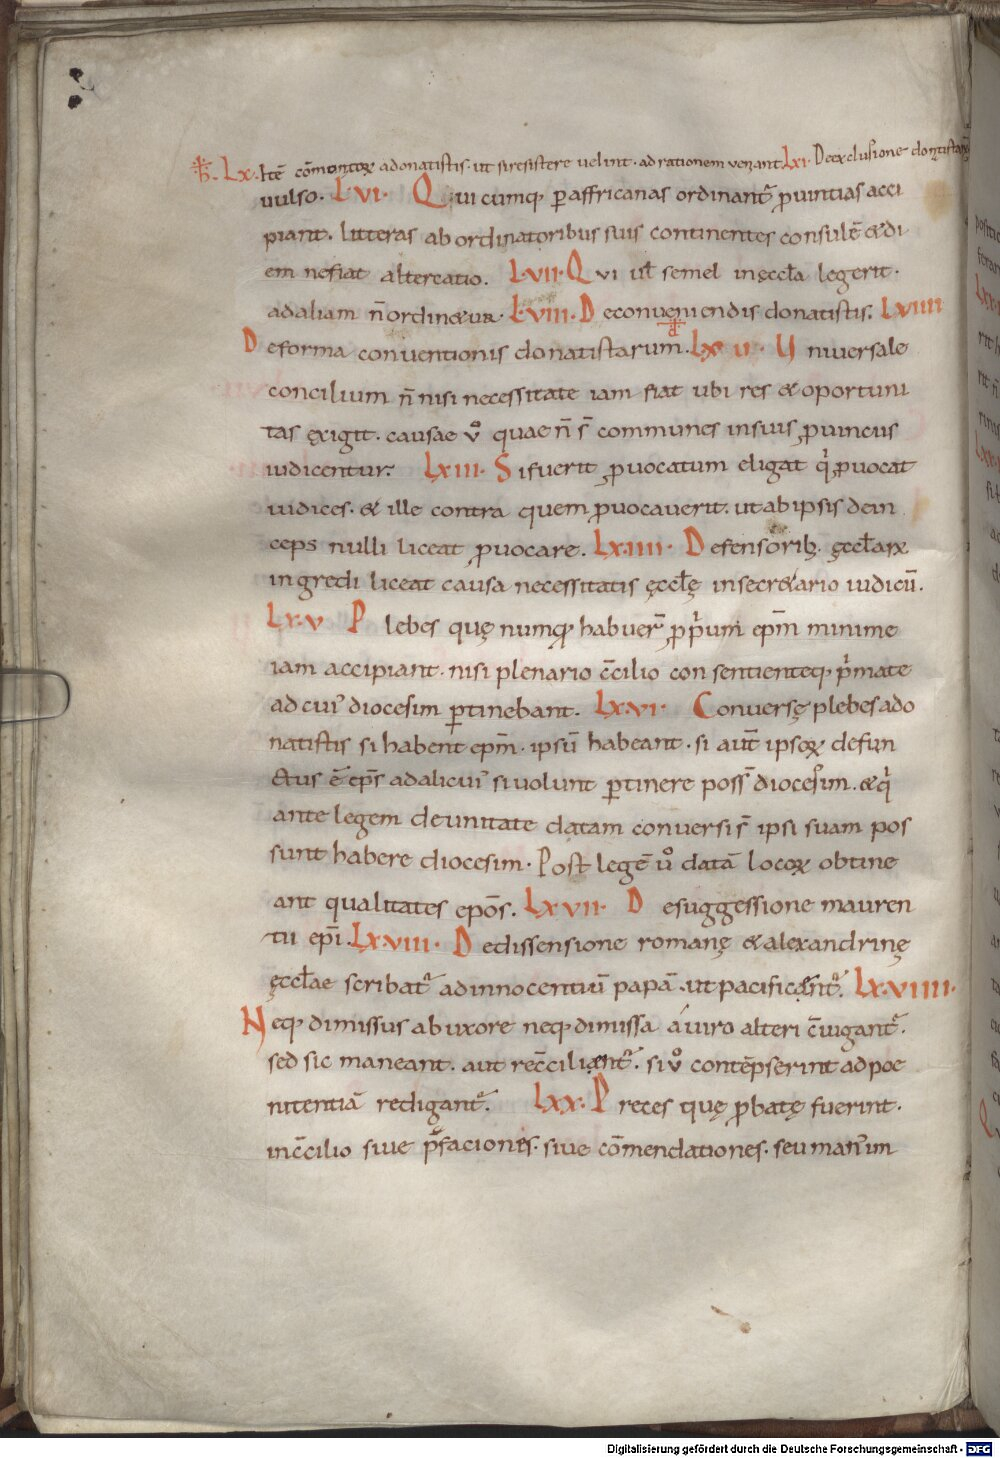 h̄. Lx. Itē cōmonitorꝝ adonatistis. ut siresistere uelint. adrationem ueniant Lxi. Deexclusione donatistarū
uulso. Lvi. Qui cumqꝫ ꝑaffricanas ordinant᷑ ꝓuintias acci
piant. litteras abordinatoribus suis continentes consulē &di
em nefiat altercatio. Lvii. Qvi ut̄ semel inęcct̄a legerit.
adaliam n̄ordin&ur. Lviii. Deconueniendis donatistis. Lxiiii
Deforma conuentionis donatistarum. đ Lxii. Universale
concilium n̄ nisi necessitate iam fiat ubi res &oportuni
tas ęxigit. causae v̊ quae n̄ s̄ communes insuis ꝓuincus
iudicentur. Lxiii. Sifuerit ꝓuocatum eligat qͥ ꝓuocat
iudices. & ille contra quem ꝓuocauerit. utabipsis dein
ceps nulli liceat ꝓuocare. Lxiiii. Defensoribꝫ. ęcct̄arꝝ
ingredi liceat causa necessitatis ęcct̄ę insecr&ario iudicū.
Lxv Plebes quę numqꝫ habuer̄ ꝓpͥum ep̄m minime
iam accipiant. nisi plenario c̄cilio consentienteqꝫ pͥmate
adcui᾿ diocesim ꝑtinebant. Lxvi. Conuersę plebes ado
natistis si habent ep̄m. ipsū habeant. si aut̄ ipsoꝝ defun
&us ē ep̄s adalicui᾿ siuolunt ꝑtinere poss̄ diocesim. &qͥ
ante legem deunitate datam conuersi s̄ ipsi suam pos
sunt habere diocesim. Post legē ů datā locoꝝ obtine
ant qualitates epōs. Lxvii. Desuggessione mauren
tii ep̄i. Lxviii. Dedissensione romanę &alexandrinę
ęcct̄ae scribat᷑ adinnocentiū papā. ut pacificent᷑. Lxviiii.
Neqꝫ dimissus abuxore neqꝫ dimissa auiro alteri c̄iugant᷑.
sed sic maneant. aut rec̄cilient᷑. si v̊ contēpserint adpoe
nitentiā redigant᷑. Lxx. Preces quę ꝓbatę fuerint.
inc̄cilio siue p̄faciones. siue cōmendationes. seu man᾿im
Digitalisierung gefördert durch die Deutsche Forschungsgemeinschaft · DFG